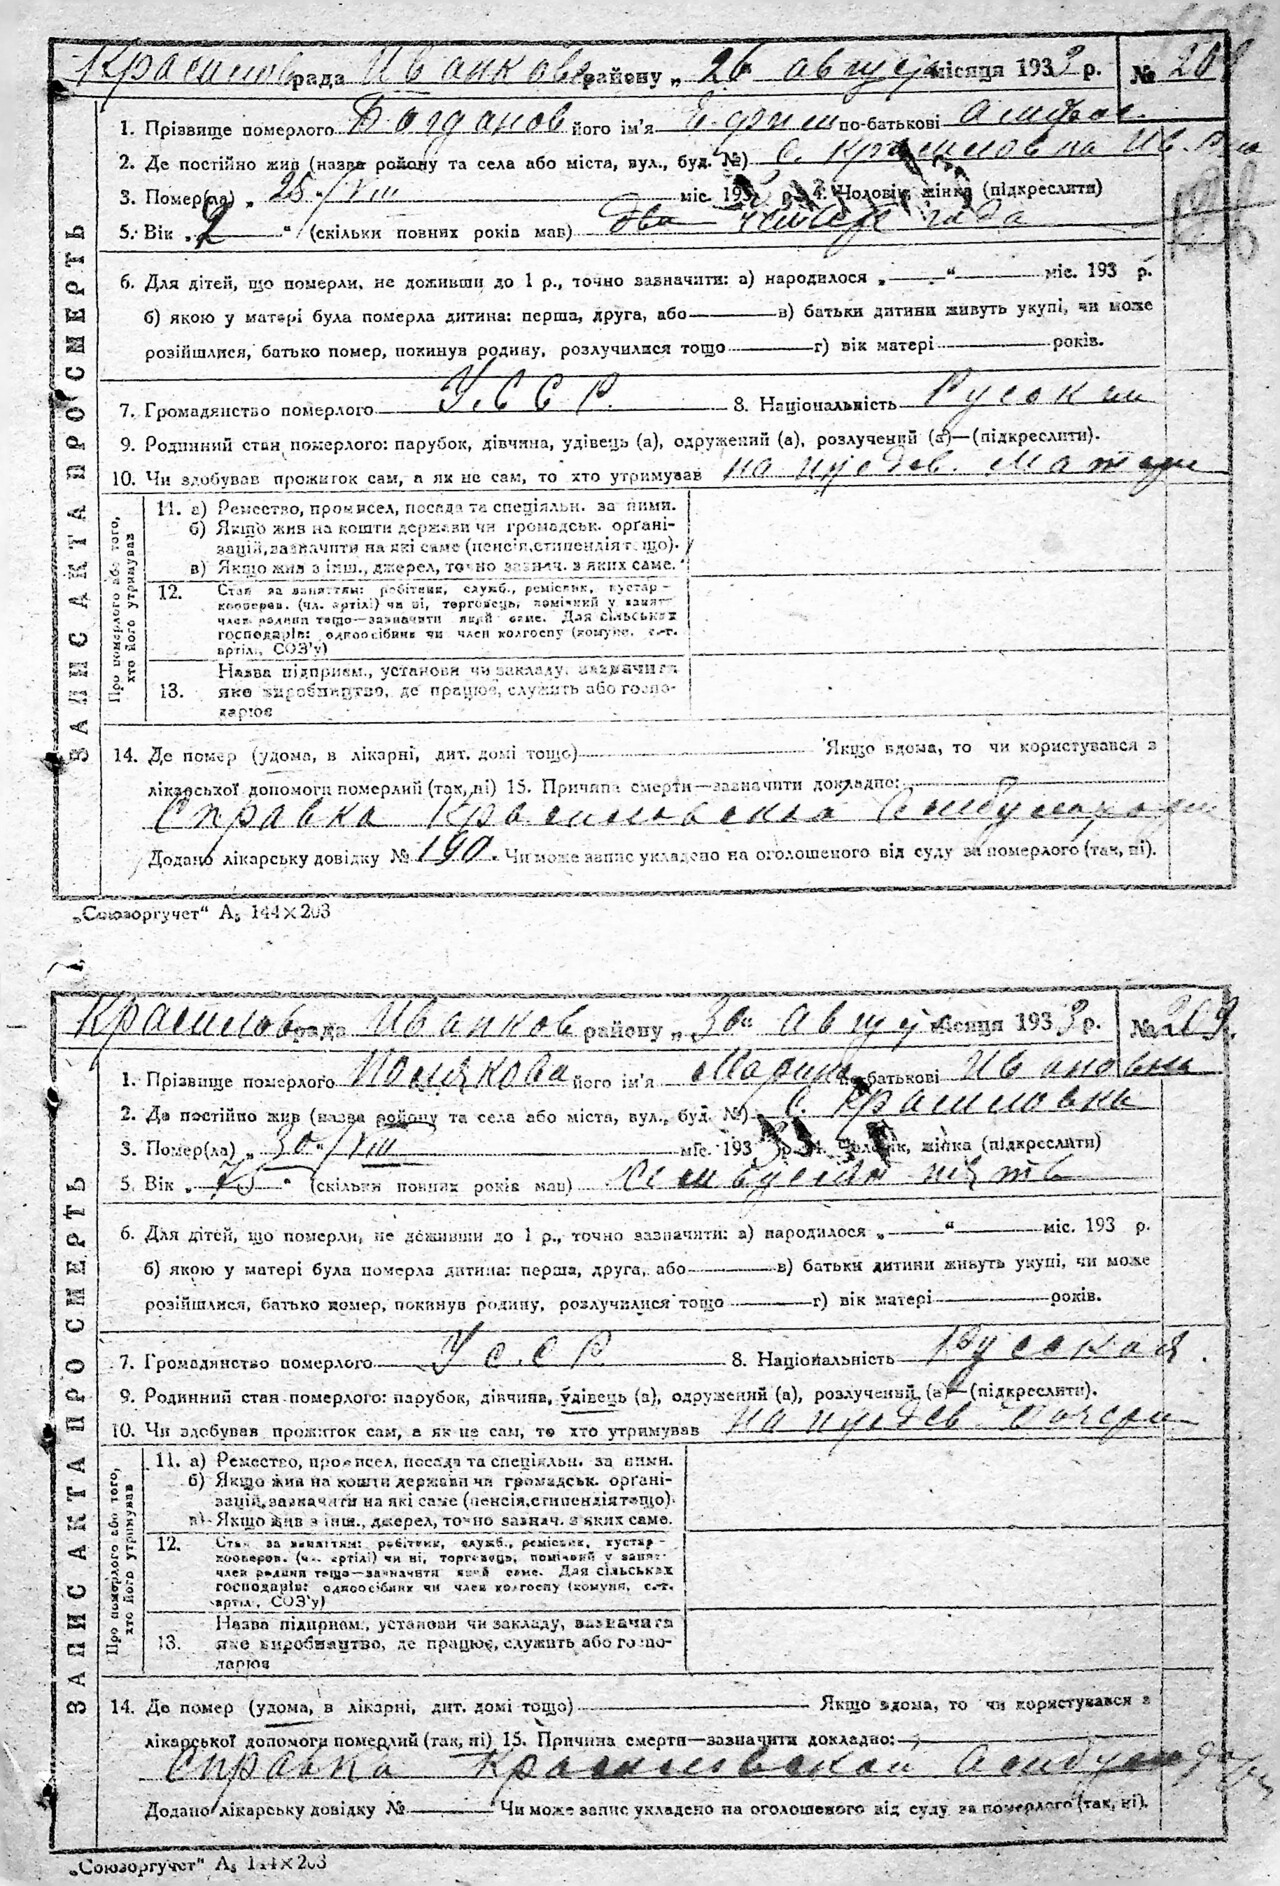 Красилов рада Иванков району „ 26 август місяця 1933 р. №
1. Прізвище померлого Богданов його ім'я Ефим по-батькові
2. Де постійно жив (назва району та села або міста, вул., буд. №) с. Красиловка Ив. р-на
3. Помер(ла) „ 25 "/VIII міс. 193 р. 4. Чоловік, жінка (підкреслити)
5. Вік „ 2 " (скільки повних років мав) два года
6. Для дітей, що померли, не доживши до 1 р., точно зазначити: а) народилося „ — " — міс. 193 р.
б) якою у матері була померла дитина: перша, друга, або — в) батьки дитини живуть укупі, чи може
розійшлися, батько помер, покинув родину, розлучилися тощо — г) вік матері — років.
7. Громадянство померлого УССР. 8. Національність Руский
9. Родинний стан померлого: парубок, дівчина, удівець (а), одружений (а), розлучений (а)—(підкреслити).
10. Чи здобував прожиток сам, а як не сам, то хто утримував на иждев. Матери
ЗАПИС АКТА ПРО СМЕРТЬ
Про померлого або того, хто його утримував
11. а) Ремество, промисел, посада та спеціяльн. за ними.
б) Якщо жив на кошти держави чи громадськ. органі-
зацій, зазначити на які саме (пенсія, стипендія тощо).
в) Якщо жив з інш., джерел, точно зазнач. з яких саме.
12. Стан за заняттям: робітник, служб., ремісник, кустар-
кооперов. (чл. артілі) чи ні, торговець, помічний у занят.
член родини тощо—зазначити який саме. Для сільських
господарів: одноосібник чи член колгоспу (комуни, с.-г.
артіл., СОЗ'у)
13. Назва підприєм., установи чи закладу, зазначити
яке виробництво, де працює, служить або госпо-
дарює
14. Де помер (удома, в лікарні, дит. домі тощо) — Якщо вдома, то чи користувався з
лікарської допомоги померлий (так, ні) 15. Причина смерти—зазначити докладно:
Справка Красиловской Амбулатории
Додано лікарську довідку № 190. Чи може запис укладено на оголошеного від суду за померлого (так, ні).
„Союзоргучет" А₅ 144×203
Красилов рада Иванков району „ 30 " август місяця 1933 р. № 209.
1. Прізвище померлого Полякова його ім'я Мария по-батькові Ивановна
2. Де постійно жив (назва району та села або міста, вул., буд. №) с. Красиловка
3. Помер(ла) „ 30 "/VIII міс. 193 р. 4. Чоловік, жінка (підкреслити)
5. Вік „ 75 " (скільки повних років мав) семьдесят пять
6. Для дітей, що померли, не доживши до 1 р., точно зазначити: а) народилося „ — " — міс. 193 р.
б) якою у матері була померла дитина: перша, друга, або — в) батьки дитини живуть укупі, чи може
розійшлися, батько помер, покинув родину, розлучилися тощо — г) вік матері — років.
7. Громадянство померлого УССР 8. Національність Русская.
9. Родинний стан померлого: парубок, дівчина, удівець (а), одружений (а), розлучений (а)—(підкреслити).
10. Чи здобував прожиток сам, а як не сам, то хто утримував на иждев. Дочери
ЗАПИС АКТА ПРО СМЕРТЬ
Про померлого або того, хто його утримував
11. а) Ремество, промисел, посада та спеціяльн. за ними.
б) Якщо жив на кошти держави чи громадськ. органі-
зацій, зазначити на які саме (пенсія, стипендія тощо).
в) Якщо жив з інш., джерел, точно зазнач. з яких саме.
12. Стан за заняттям: робітник, служб., ремісник, кустар-
кооперов. (чл. артілі) чи ні, торговець, помічний у занят.
член родини тощо—зазначити який саме. Для сільських
господарів: одноосібник чи член колгоспу (комуни, с.-г.
артіл., СОЗ'у)
13. Назва підприєм., установи чи закладу, зазначити
яке виробництво, де працює, служить або госпо-
дарює
14. Де помер (удома, в лікарні, дит. домі тощо) — Якщо вдома, то чи користувався з
лікарської допомоги померлий (так, ні) 15. Причина смерти—зазначити докладно:
Справка Красиловской Амбулатории
Додано лікарську довідку № — Чи може запис укладено на оголошеного від суду за померлого (так, ні).
„Союзоргучет" А₅ 144×203